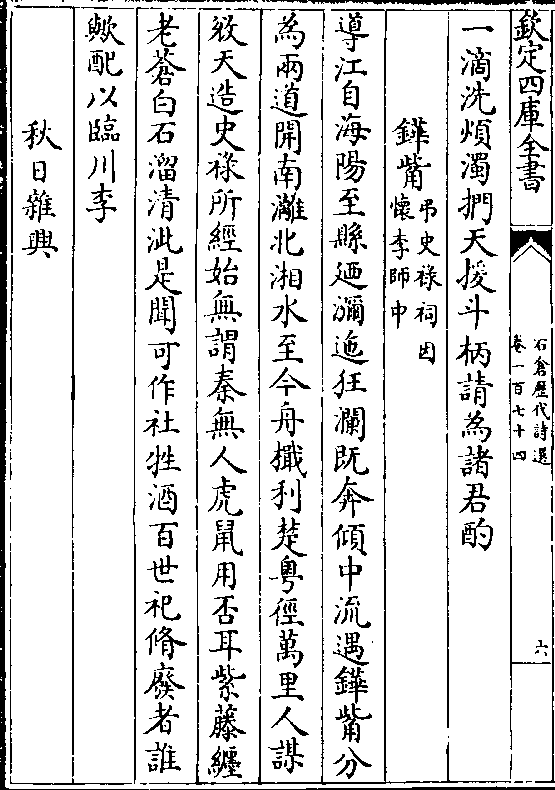 欽定四庫全書
石倉歷代詩選
卷一百七十四
六
一滴洗煩濁捫天援斗柄請為諸君酌
鏵觜
弔史祿祠因
懷李師中
導江自海陽至縣廼瀰迤狂瀾既奔傾中流遇鏵觜分
為兩道開南灕北湘水至今舟檝利楚粤徑萬里人謀
敓天造史祿所經始無謂秦無人虎鼠用否耳紫藤纏
老蒼白石溜清泚是閒可作社牲酒百世祀脩廢者誰
歟配以臨川李
秋日雜興